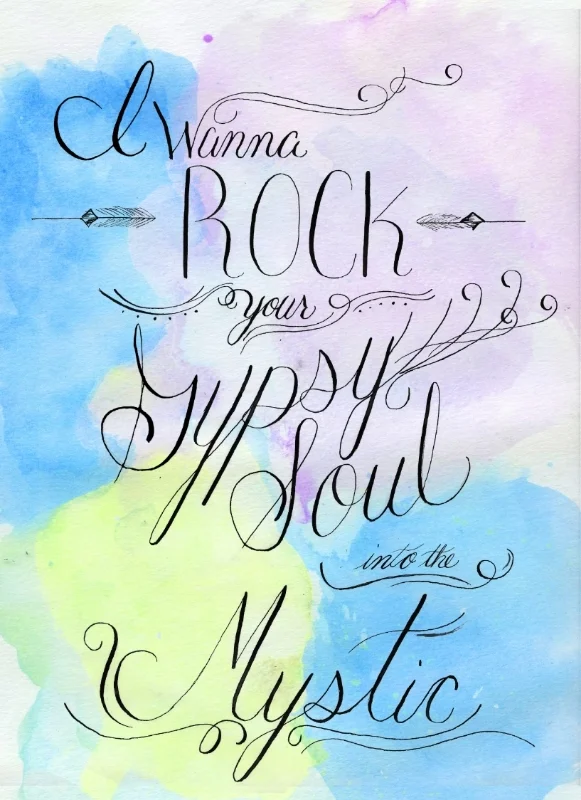 I wanna
ROCK
your
Gypsy
Soul
into the
Mystic